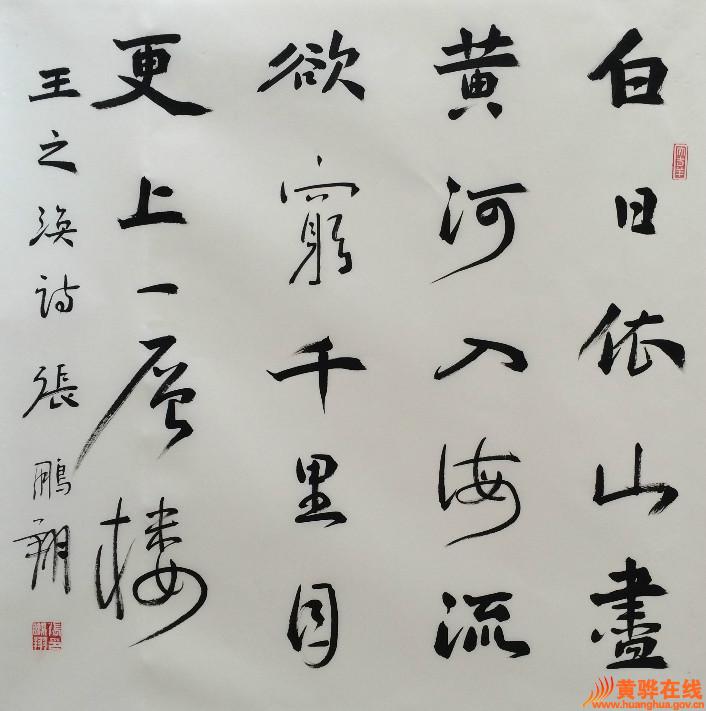 白日依山盡
黄河入海流
欲窮千里目
更上一层楼
王之涣诗 張鵬翔
黄骅在线
www.huanghua.gov.cn